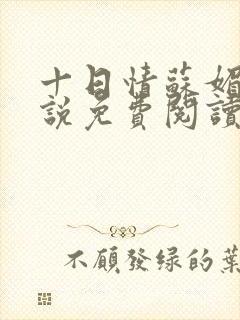 十日情蘇媚
說免費閱讀
不願發綠的葉